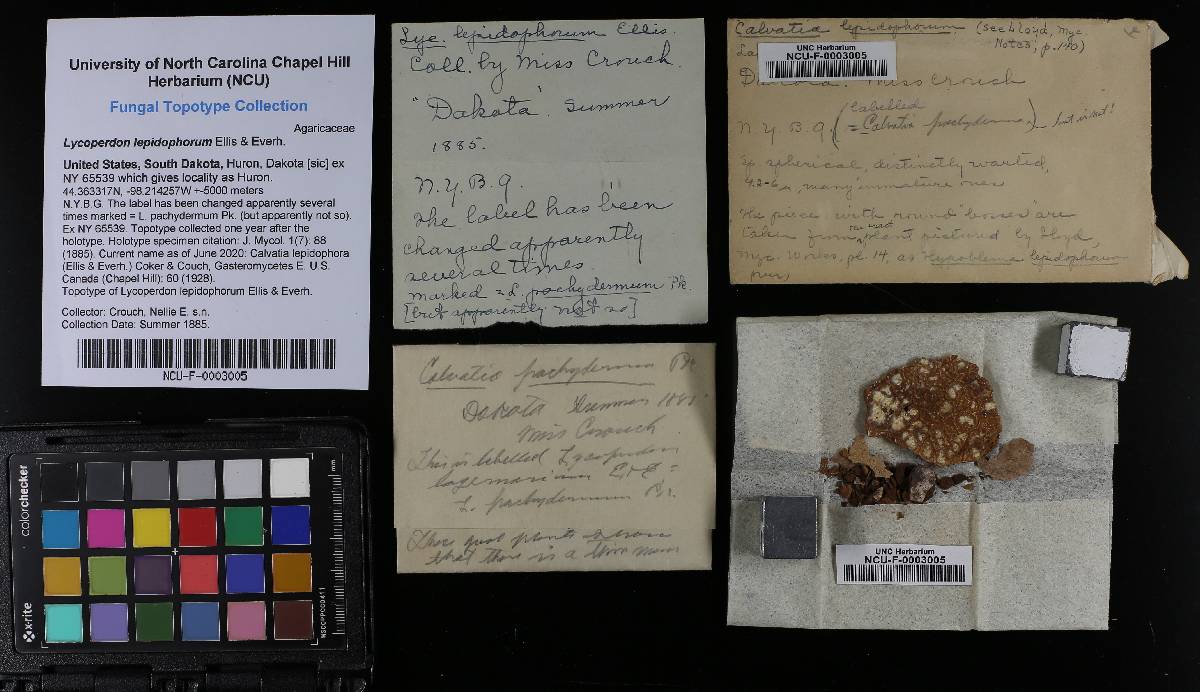 University of North Carolina Chapel Hill
Herbarium (NCU)
Fungal Topotype Collection
Agaricaceae
Lycoperdon lepidophorum Ellis & Everh.
United States, South Dakota, Huron, Dakota [sic] ex
NY 65539 which gives locality as Huron.
44.363317N, -98.214257W +-5000 meters
N.Y.B.G. The label has been changed apparently several
times marked = L. pachydermum Pk. (but apparently not so).
Ex NY 65539. Topotype collected one year after the
holotype. Holotype specimen citation: J. Mycol. 1(7): 88
(1885). Current name as of June 2020: Calvatia lepidophora
(Ellis & Everh.) Coker & Couch, Gasteromycetes E. U.S.
Canada (Chapel Hill): 60 (1928).
Topotype of Lycoperdon lepidophorum Ellis & Everh.
Collector: Crouch, Nellie E. s.n.
Collection Date: Summer 1885.
NCU-F-0003005
Lyc. lepidophorum Ellis.
Coll. by Miss Crouch.
"Dakota". Summer
1885.
N.Y.B.G.
The label has been
changed apparently
several times.
marked = L. pachydermum Pk.
[but apparently not so]
Calvatia lepidophorum (see Lloyd, Myc.
Notes, p. 140)
UNC Herbarium
NCU-F-0003005
Miss Crouch
N.Y.B.G. (labelled
= Calvatia pachyderma) - but is not!
Sp. spherical, distinctly warted,
4.2-6 µ, many immature ones
The piece with round "bosses" are
taken from the exact plant pictured by Lloyd,
Myc. Works, pl. 14, as Hypoblema lepidophorum
Calvatia pachydermum Pk
Dakota Summer 1885
Miss Crouch
This is labelled Lycoperdon
E & E =
L. pachydermum Pk.
that there is a
colorchecker
x-rite
mm
UNC Herbarium
NCU-F-0003005